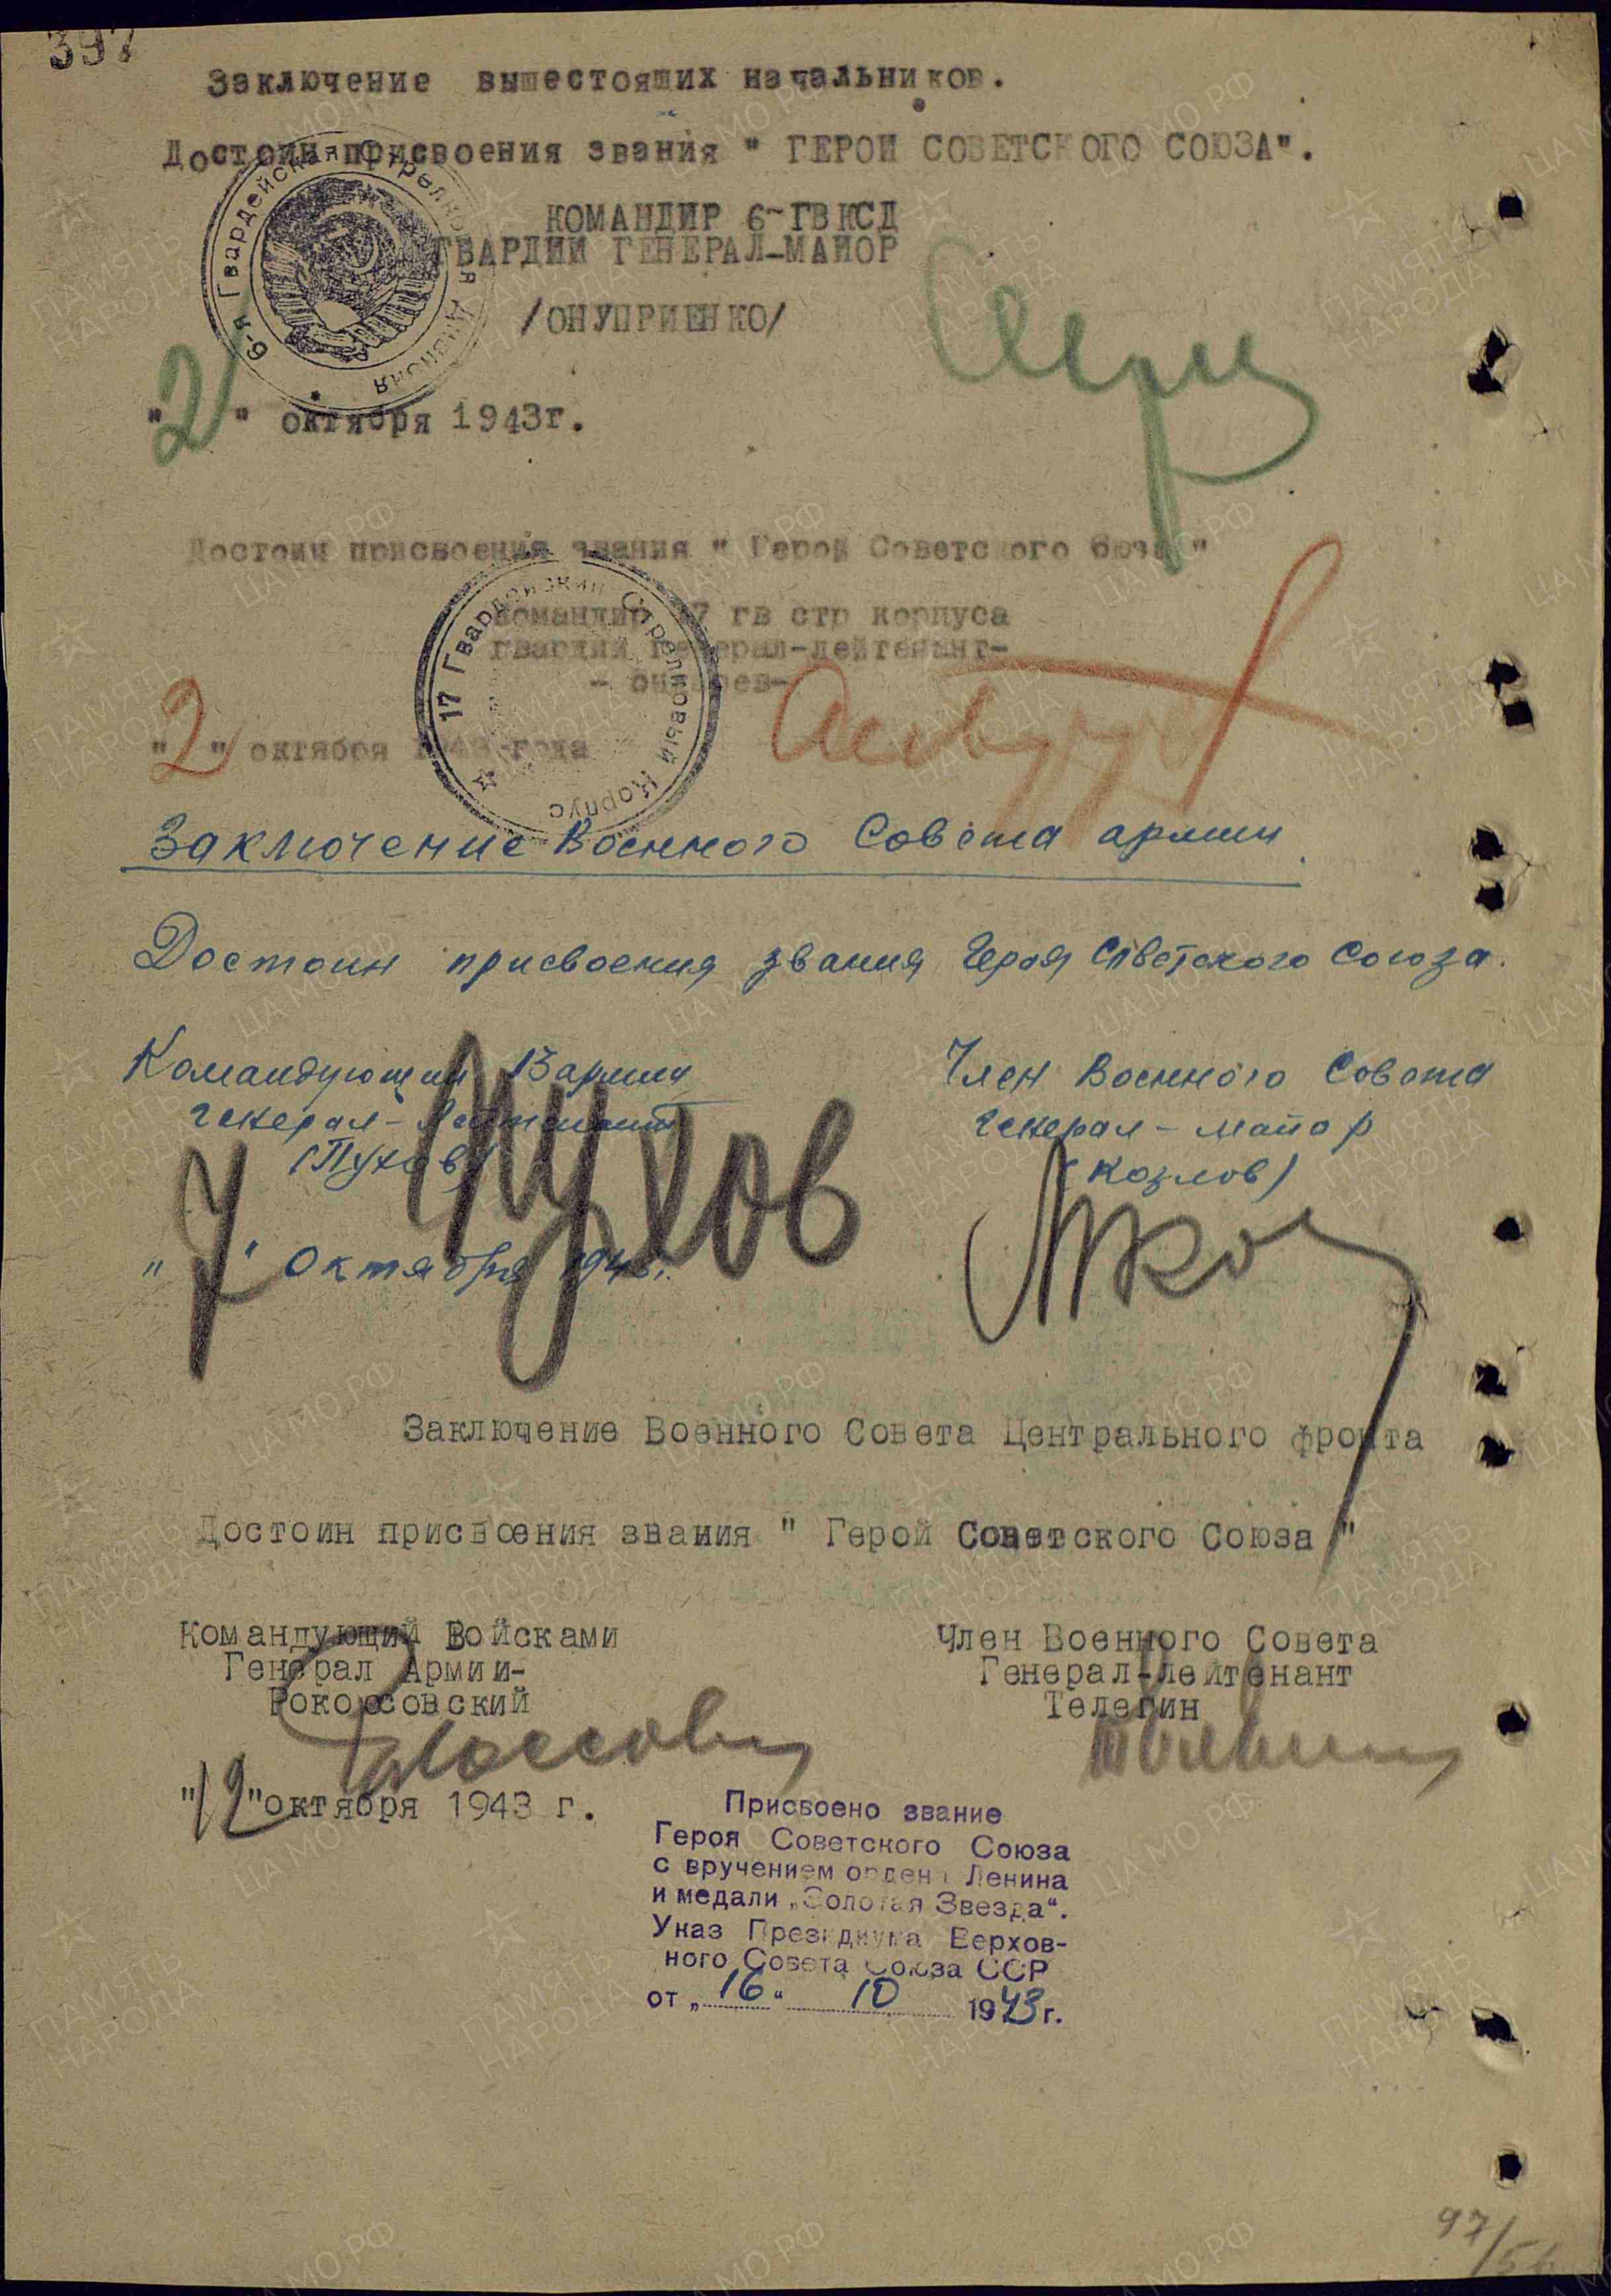 397
Заключение вышестоящих начальников.
Достоин присвоения звания " ГЕРОЙ СОВЕТСКОГО СОЮЗА".
КОМАНДИР 6-ГВКСД
ГВАРДИИ ГЕНЕРАЛ-МАЙОР
/ОНУПРИЕНКО/
6-я Гвардейская Стрелковая Дивизия
"2" октября 1943г.
Достоин присвоения звания " Герой Советского Союза "
Командир 17 гв стр корпуса
гвардии генерал-лейтенант-
17 Гвардейский Стрелковый Корпус
"2" октября 1943 года
Заключение Военного Совета армии
Достоин присвоения звания Героя Советского Союза.
Командующий 13 армии
Генерал-Лейтенант
(Пухов)
Пухов
"7" Октября 1943г.
Член Военного Совета
Генерал-майор
(Козлов)
Заключение Военного Совета Центрального фронта
Достоин присвоения звания " Герой Советского Союза "
Командующий Войсками
Генерал Армии-
Рокоссовский
Член Военного Совета
Генерал-лейтенант
Телегин
"12"октября 1943 г.
Присвоено звание
Героя Советского Союза
с вручением ордена Ленина
и медали „Золотая Звезда“.
Указ Президиума Верхов-
ного Совета Союза ССР
от „16“ 10 1943г.